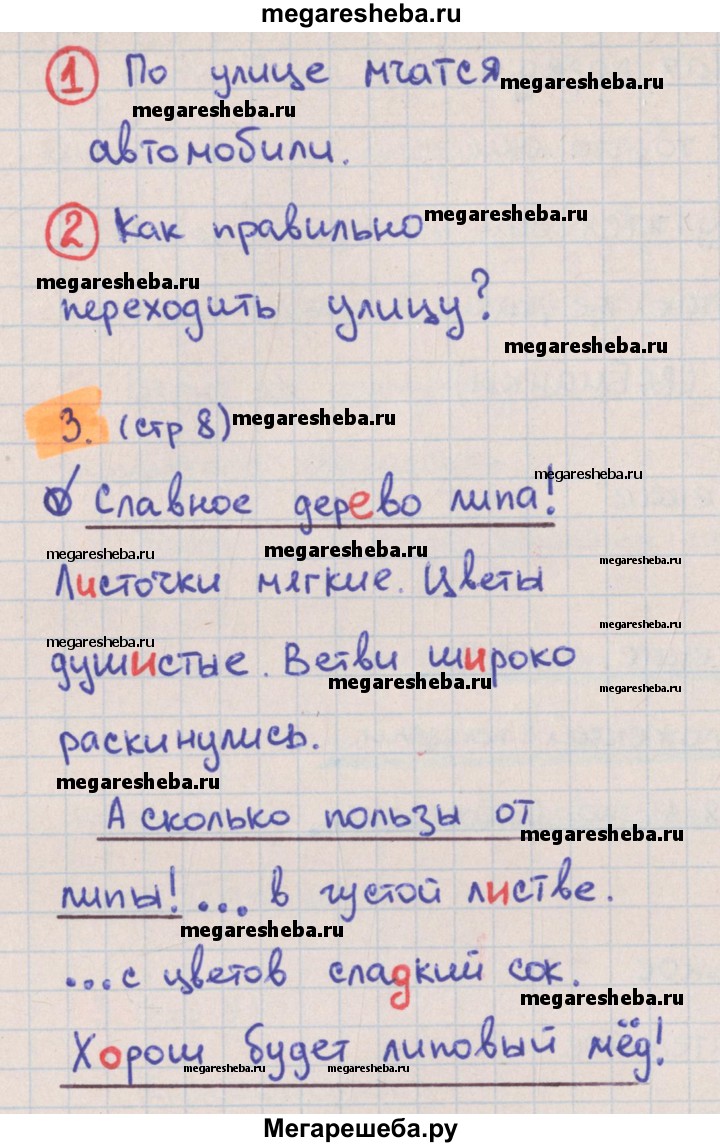 megaresheba.ru
1 По улице мчатся
megaresheba.ru
megaresheba.ru
автомобили.
2 Как правильно
megaresheba.ru
megaresheba.ru
переходить улицу?
megaresheba.ru
3. (стр 8)
megaresheba.ru
megaresheba.ru
Славное дерево липа!
megaresheba.ru
megaresheba.ru
megaresheba.ru
Листочки мягкие. Цветы
megaresheba.ru
megaresheba.ru
душистые. Ветви широко
megaresheba.ru
megaresheba.ru
раскинулись.
megaresheba.ru
А сколько пользы от
megaresheba.ru
липы! ... в густой листве.
megaresheba.ru
...с цветов сладкий сок.
megaresheba.ru
Хорош будет липовый мёд!
megaresheba.ru
megaresheba.ru
Мегарешеба.ру